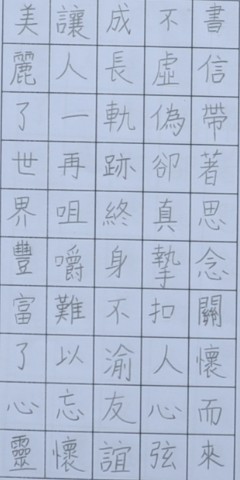 書信帶著思念關懷而來
不虛偽卻真摯扣人心弦
成長軌跡終身不渝友誼
讓人一再咀嚼難以忘懷
美麗了世界豐富了心靈